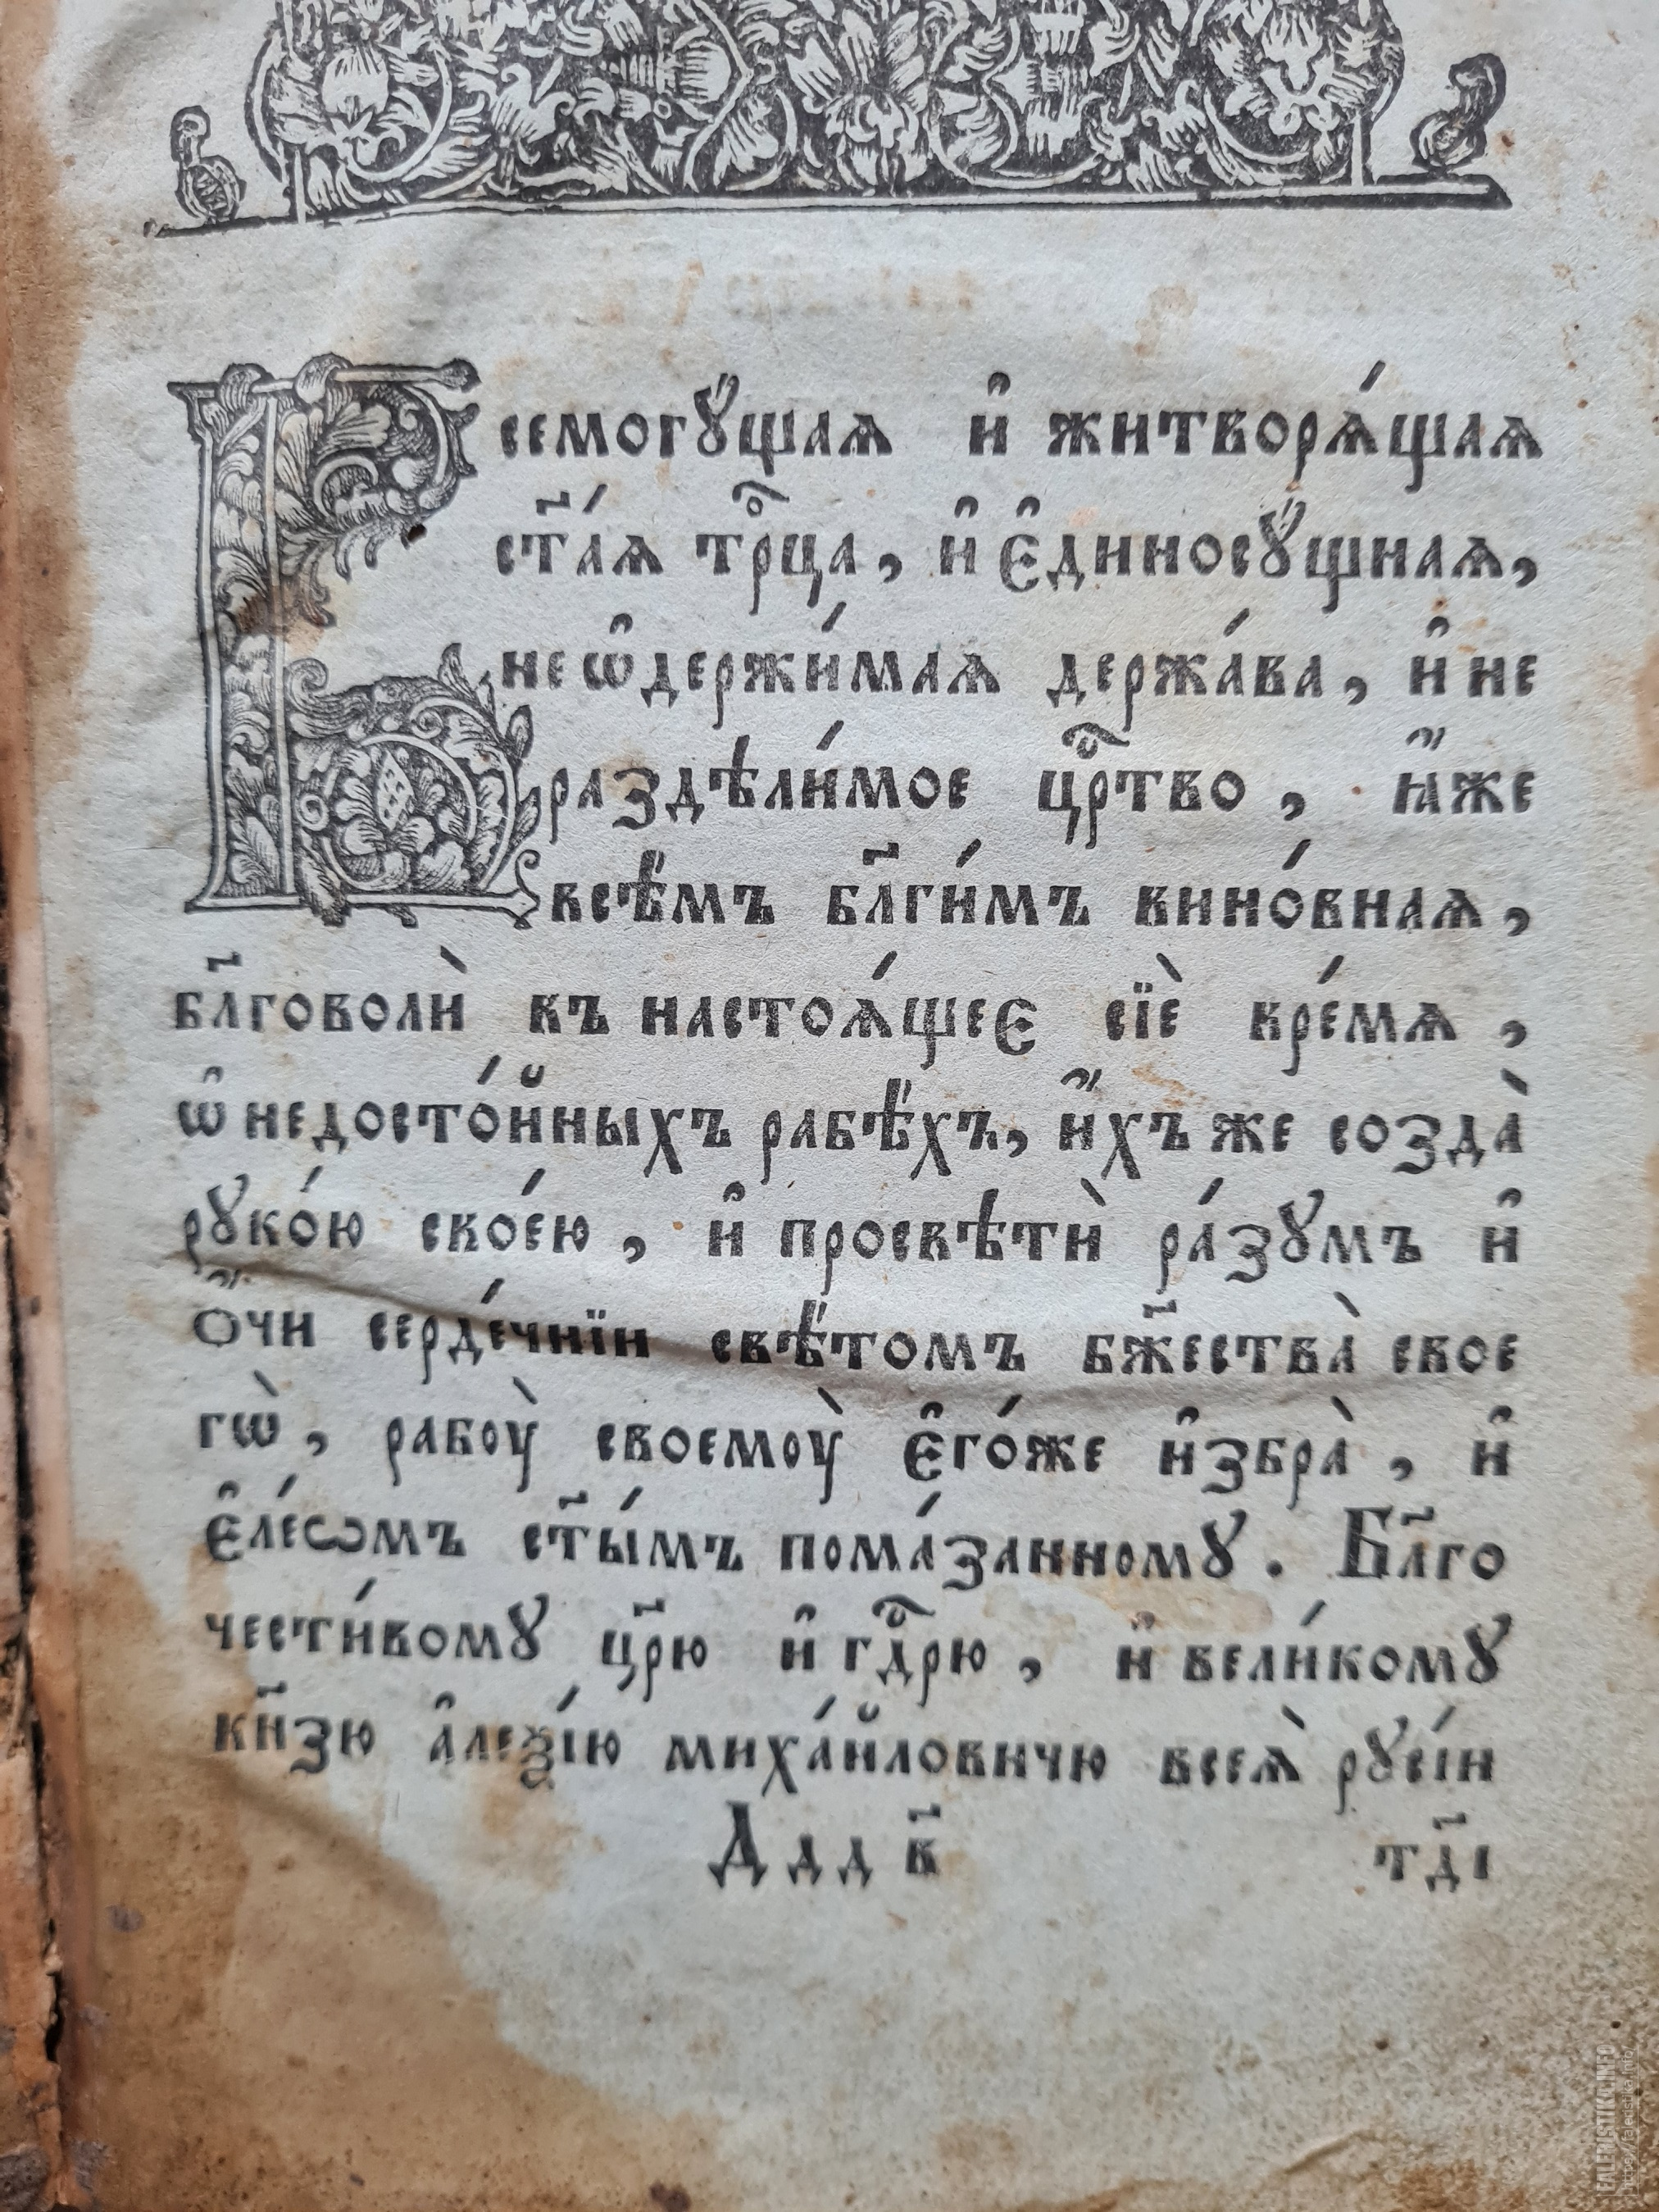 Всемогꙋ́щаѧ и҆ житворѧ́щаѧ
ст҃а́ѧ трⷪ҇ца, и҆ є҆диносꙋ́щнаѧ,
неѡ҆держи́маѧ держа́ва, и҆ не
раздѣли́мое црⷭ҇тво, ꙗ҆́же
всѣ́мъ бл҃ги́мъ вино́внаѧ,
бл҃говолѝ въ настоѧ́щеє сїѐ вре́мѧ,
ѡ҆ недосто́йныхъ рабѣ́хъ, и҆́хъ же созда̀
рꙋко́ю свое́ю, и҆ просвѣтѝ ра́зꙋмъ и҆
ѻ҆́чи серде́чнїи свѣ́томъ бж҃ества̀ свое
гѡ̀, рабоу̀ своемоу̀ є҆го́же и҆збра̀, и҆
є҆ле́ѡмъ ст҃ы́мъ пома́занномꙋ. Бл҃го
чести́вомꙋ цр҃ю и҆ гдⷭ҇рю, и҆ вели́комꙋ
кн҃зю а҆леѯі́ю миха́йловичю всеѧ̀ рꙋсі́и
Д д д в҃ тд҃і
FALERISTIKA.INFO
https://faleristika.info